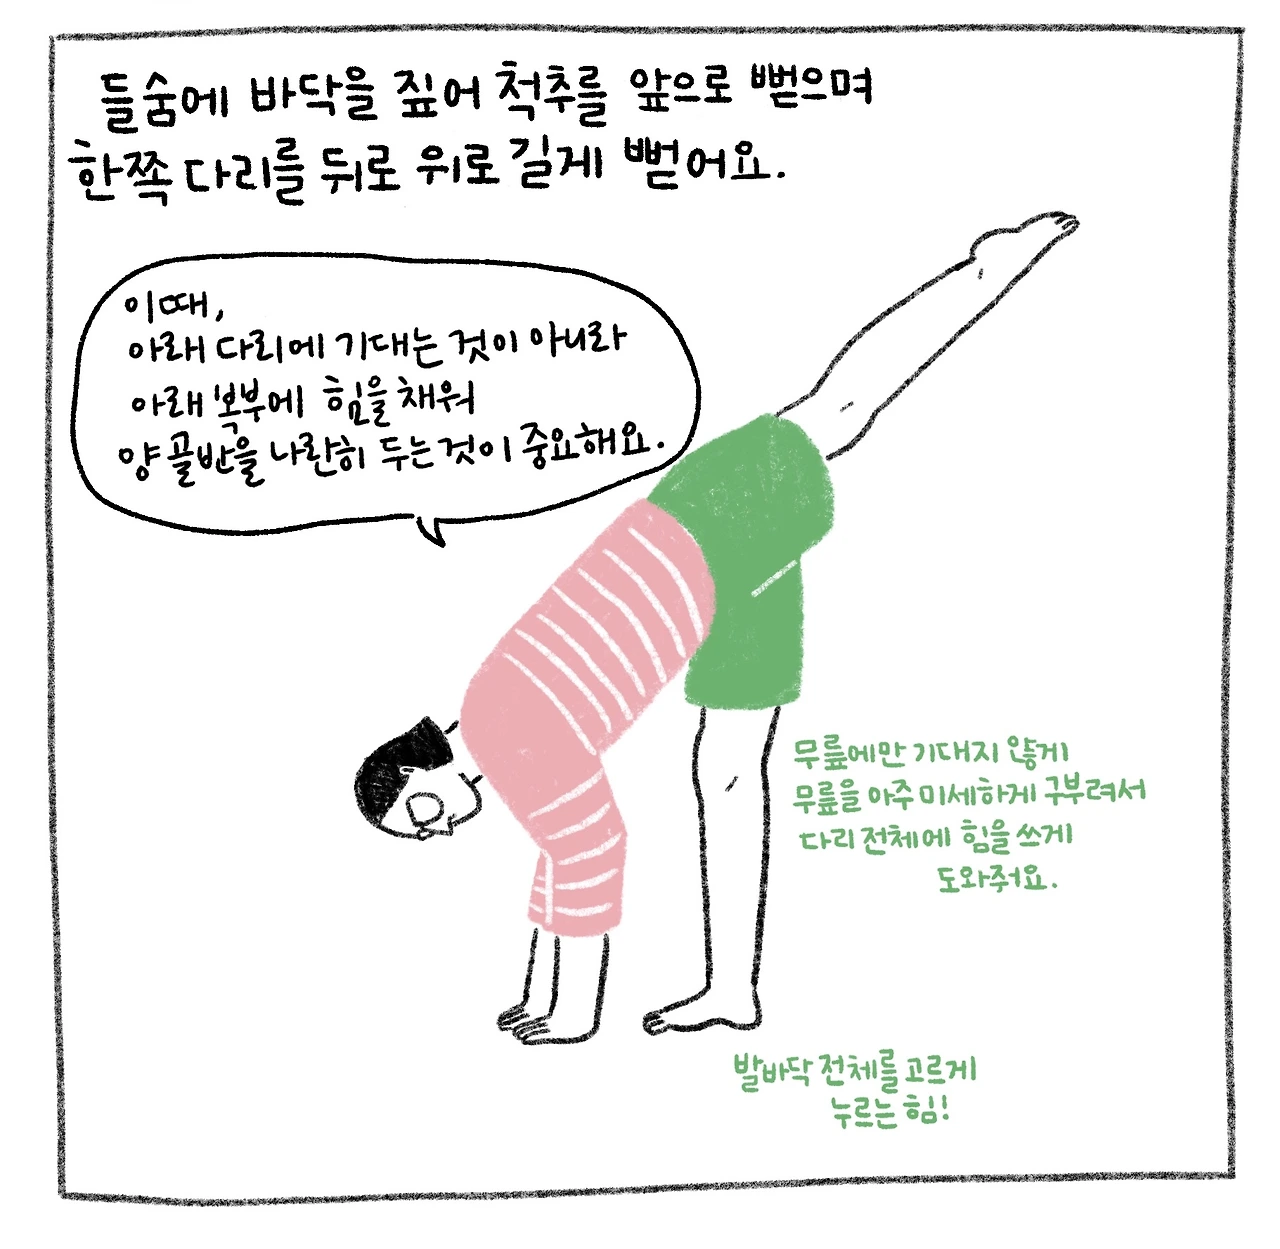 들숨에 바닥을 짚어 척추를 앞으로 뻗으며
한쪽 다리를 뒤로 위로 길게 뻗어요.
이때,
아래 다리에 기대는 것이 아니라
아래 복부에 힘을 채워
양 골반을 나란히 두는 것이 중요해요.
무릎에만 기대지 않게
무릎을 아주 미세하게 구부려서
다리 전체에 힘을 쓰게
도와줘요.
발바닥 전체를 고르게
누르는 힘!